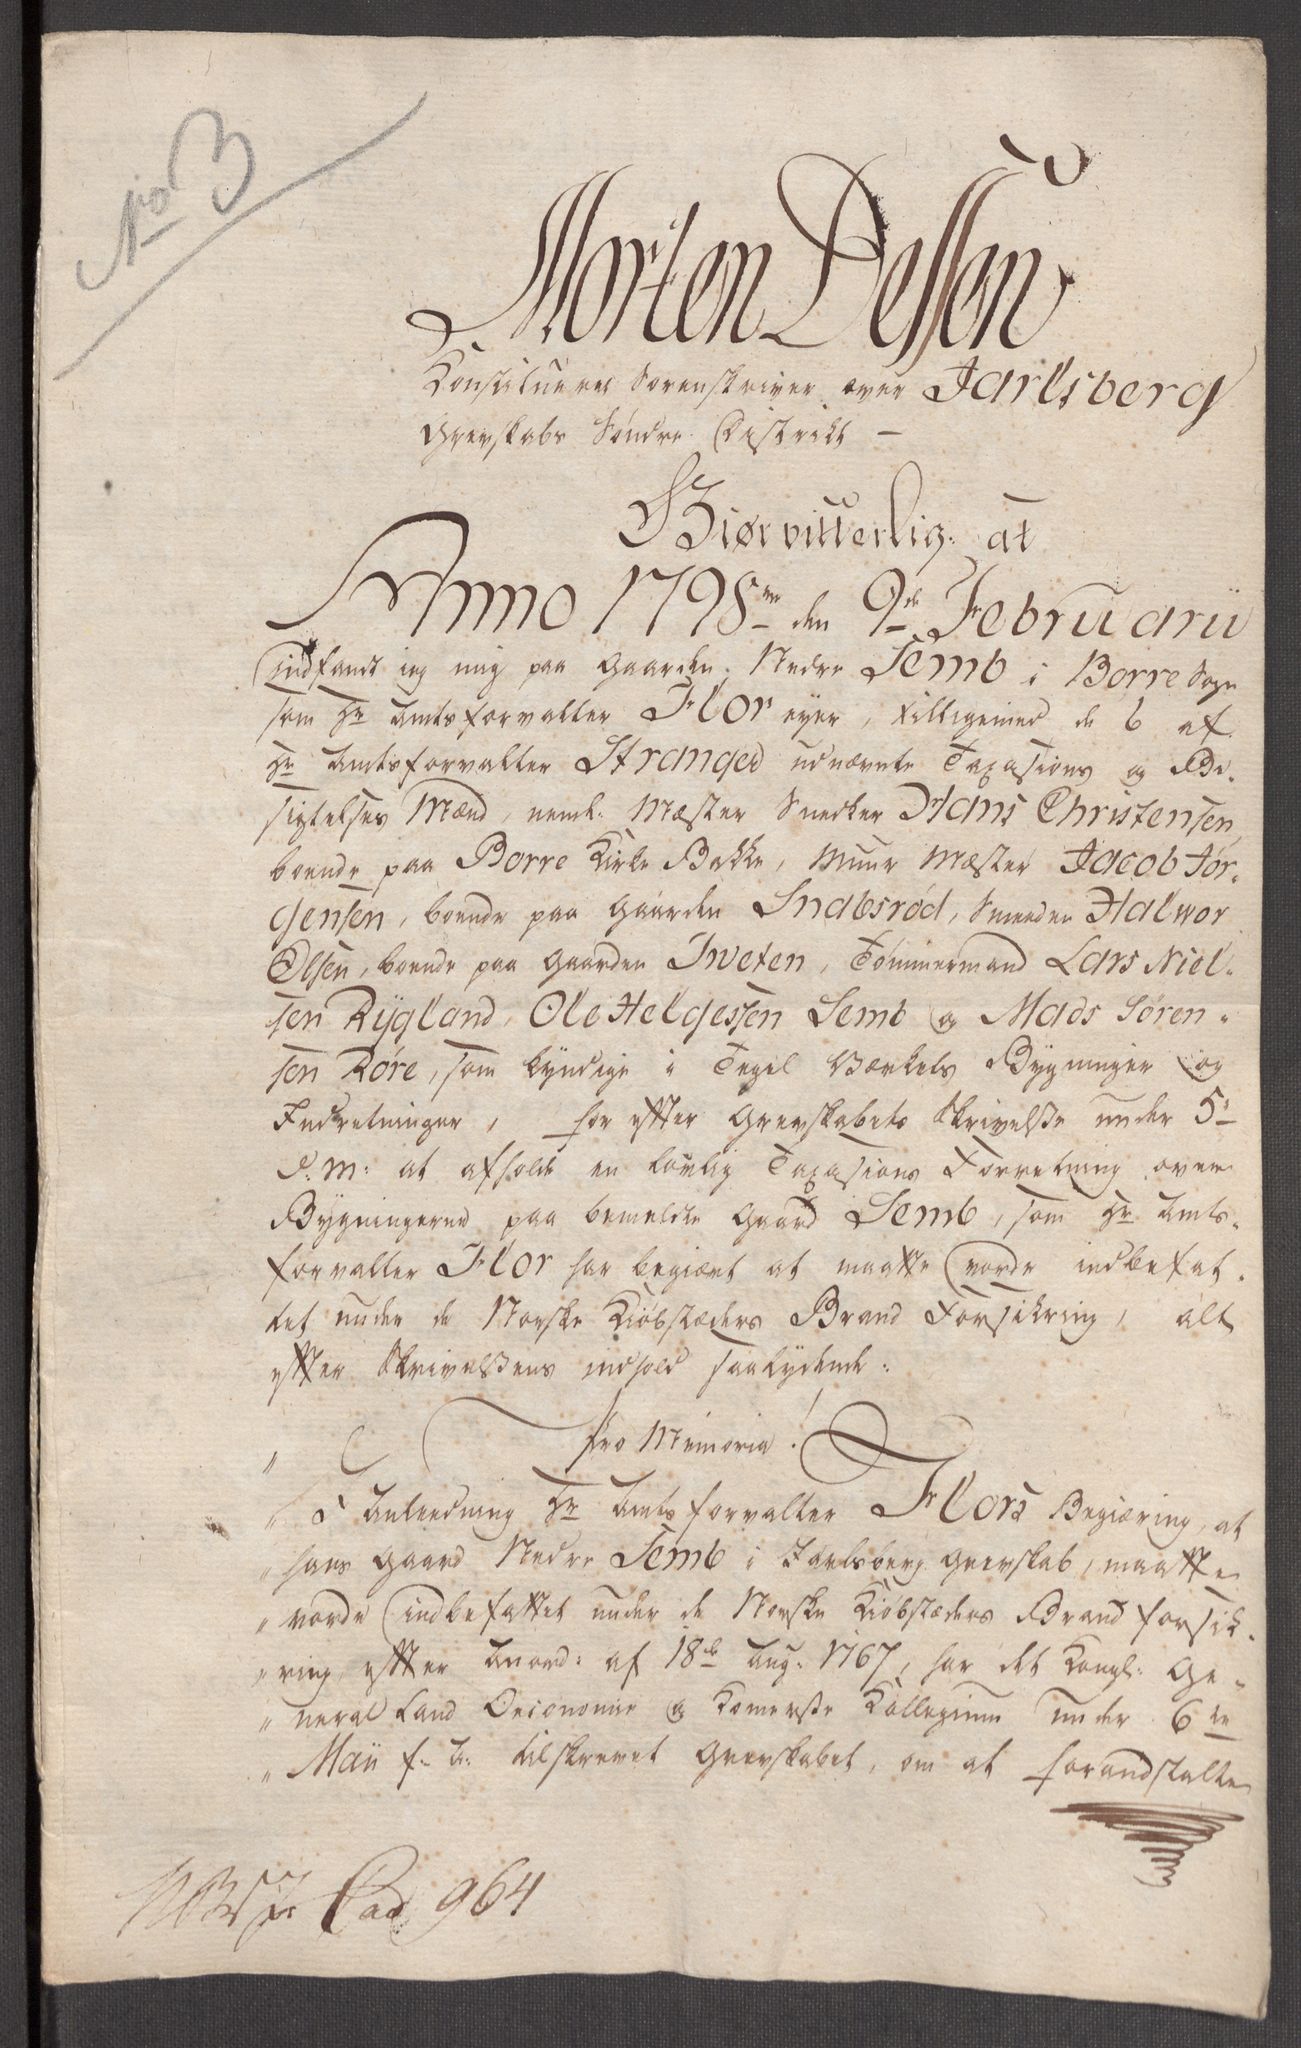 No 3
Morten Dessen
Constitueret Sorenskriver over Jarlsberg
Grevskabs Søndre District —
Giør vitterlig: at
Anno 1798 den 9de Februarii
indfandt jeg mig paa Gaarden Nedre Semb i Borre Sogn
som Hr Amtsforvalter Flor eyer, tilligemed de 6 af
Hr Amtsforvalter Stranger udnævnte Taxations og Be-
sigtelses Mænd, neml: Mæster Snedker Hans Christensen,
boende paa Borre Kirke Bakke, Muur Mæster Jacob Jør-
gensen, boende paa Gaarden Snabsrød, Smeden Halwor
Olsen, boende paa Gaarden Tweten, Tømmermand Lars Niel-
sen Rygland, Ole Helgessen Semb og Mads Søren-
sen Røre, som kyndige i Tegel Værkets Bygninger og
Indretninger, for efter Grevskabets Skrivelse under 5te
d: M: at afholde en lovlig Taxations Forretning over
Bygningerne paa bemeldte Gaard Semb, som Hr Amts-
forvalter Flor har begiært at maatte vorde indbefat-
tet under de Norske Kiøbstæders Brand Forsikring, alt
efter Skrivelsens indhold saalydende:
" Pro Memoria!
" I Anledning Hr Amtsforvalter Flors Begiæring, at
" hans Gaard Nedre Semb i Jarlsberg Grevskab, maatte
" vorde indbefattet under de Norske Kiøbstæders Brandforsik-
" ring, efter Anord: af 18de Aug: 1767, har det Kongl: Ge-
" neral Land Oeconomie og Komerse Collegium under 6te
" Maii f: A: tilskrevet Grevskabet, om at foranstalte
Cad 964